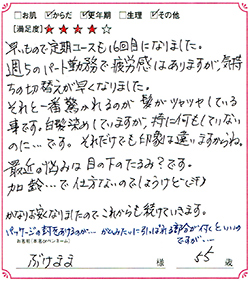 □お肌 ☑からだ ☑更年期 □生理 ☑その他
[満足度] ★★★★☆
早いもので定期コースも16回目になりました。
週5のパート勤務で疲労感はありますが、気持
ちの切替えが早くなりました。
それと一番驚れるのが 髪がツヤツヤしている
事です。白髪染めしていますが、特に何もしていない
のに…です。それだけでも印象は違いますからね。
最近の悩みは目の下のたるみ?です。
加齢…で仕方ないのでしょうけど(汗)
かなり安くなりましたのでこれからも続けていきます。
パッケージの封をあけるのが…
ですが…
お名前(本名orペンネーム)
ぷりまま 様 55 歳